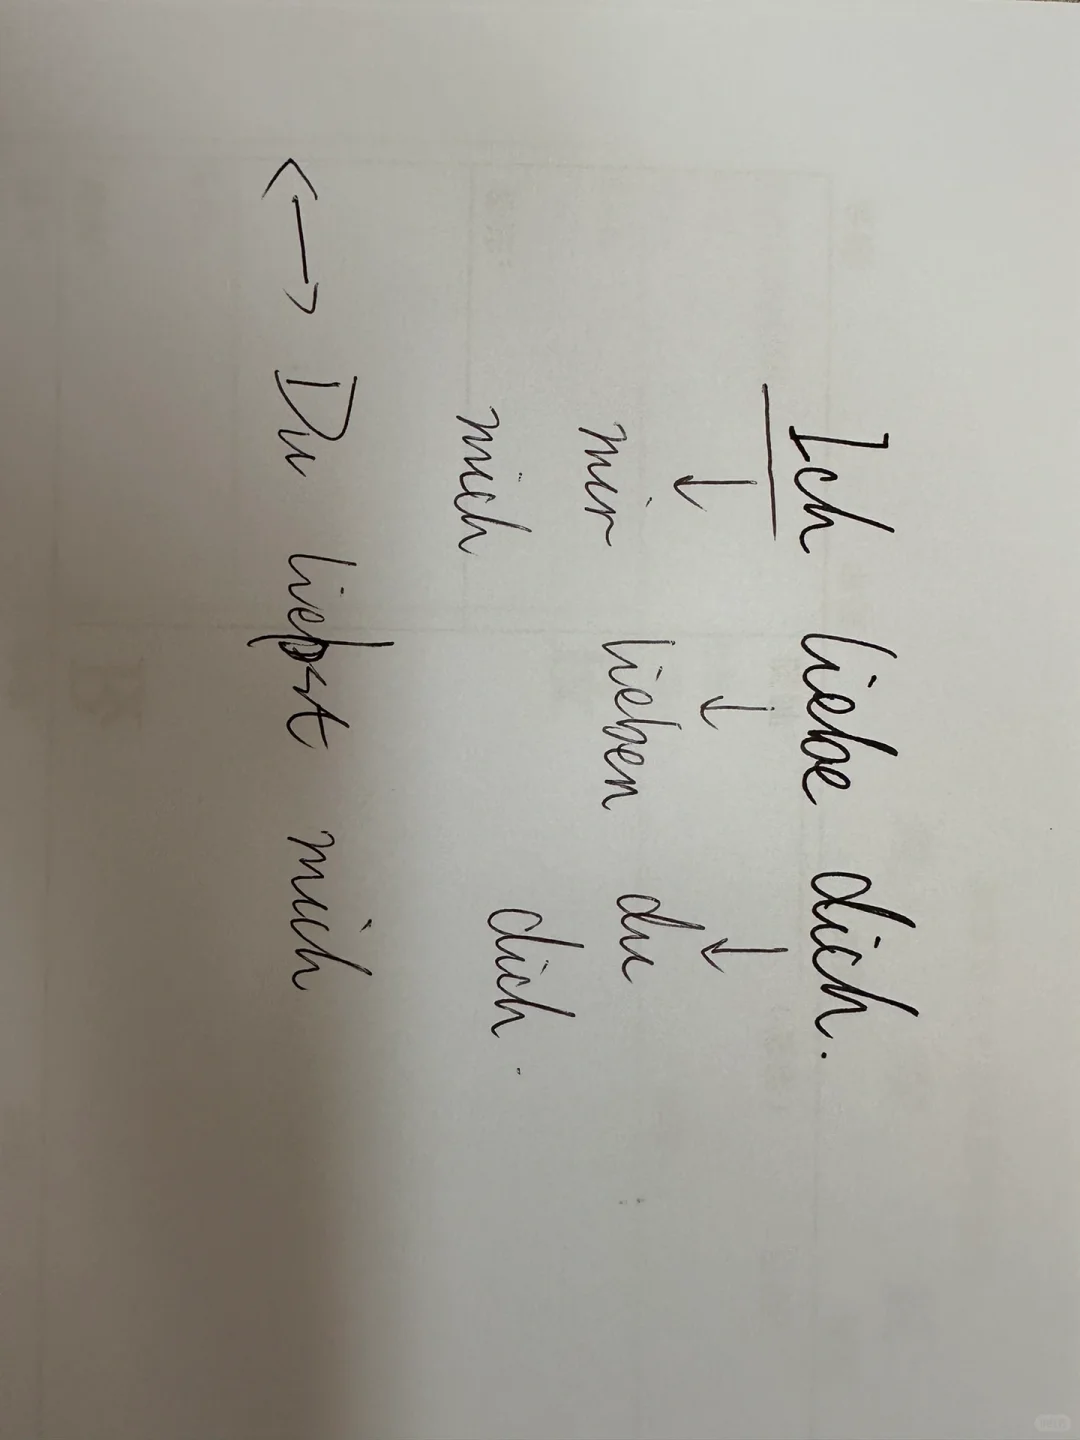 Ich liebe dich.
↓ ↓ ↓
mir lieben du
mich dich.
<—> Du liebst mich